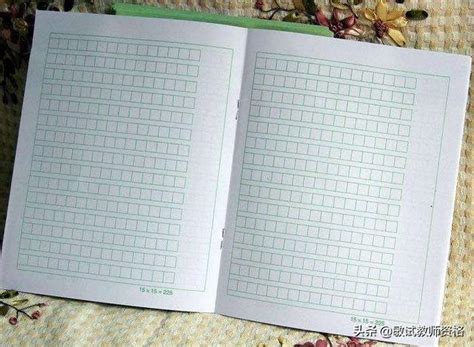 15 x 15 = 225
15 x 15 = 225
头条 @敏试教师资格